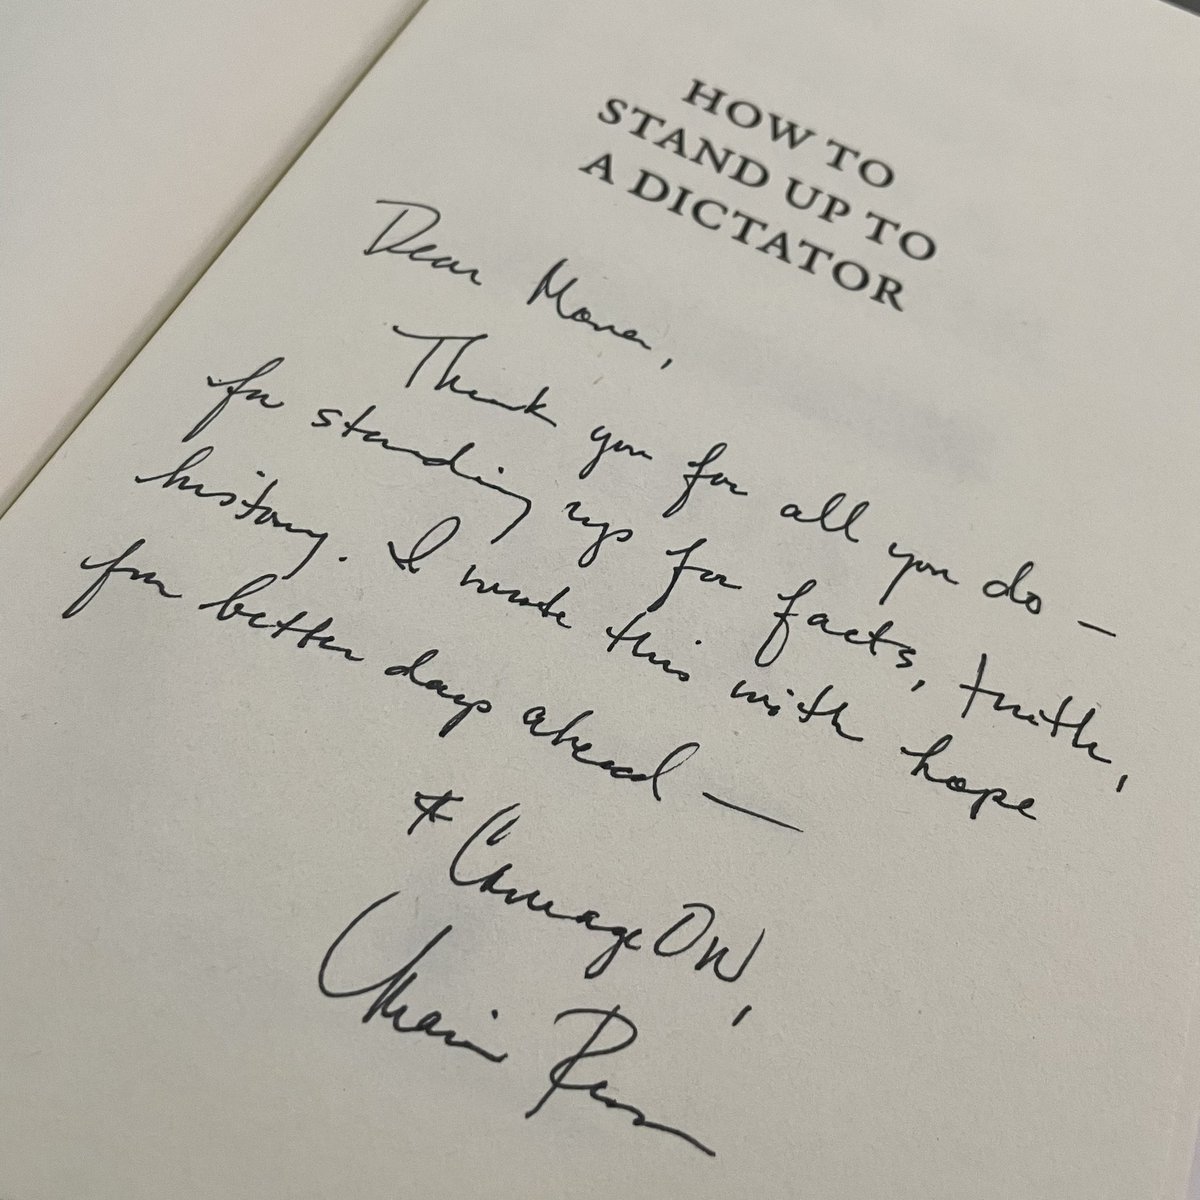 HOW TO
STAND UP TO
A DICTATOR
Dear Mona,
Thank you for all you do —
for standing up for facts, truth,
history. I wrote this with hope
for better days ahead —
#CourageON,
Maria Ressa